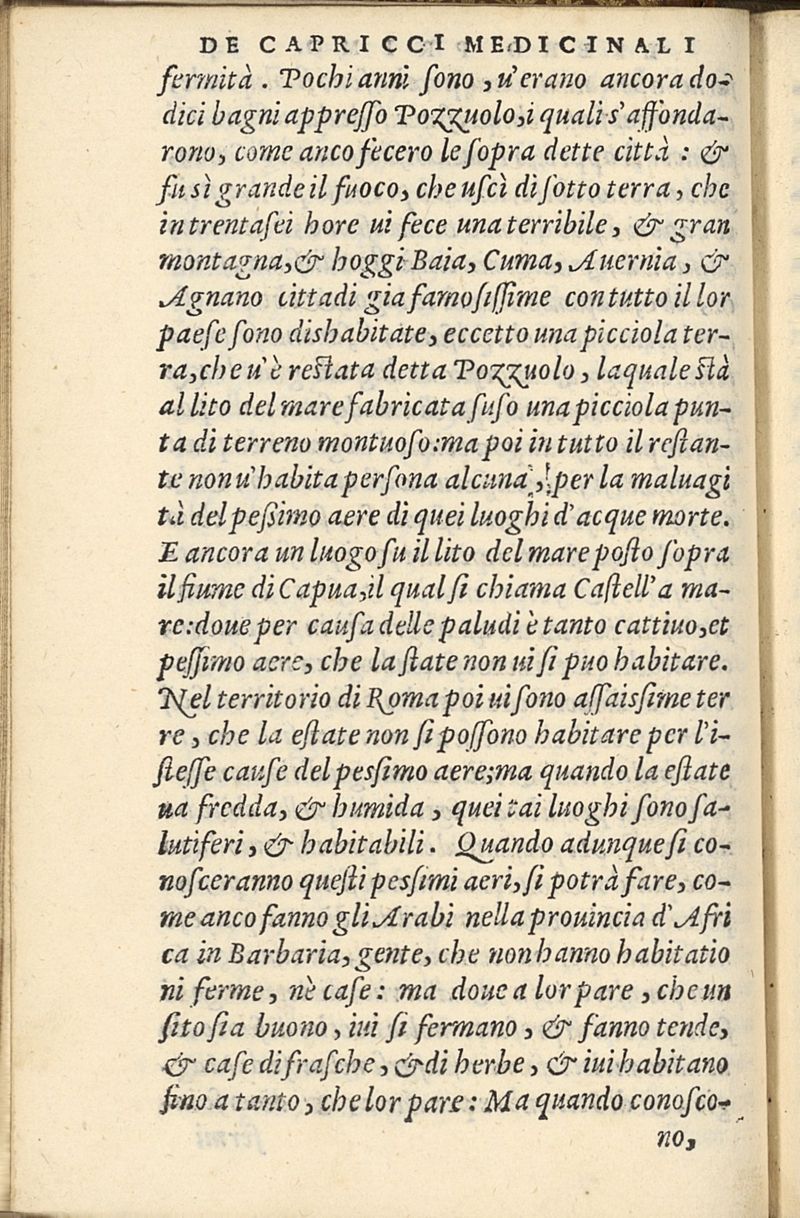 DE CAPRICCI MEDICINALI
fermità. Pochi anni ſono, u'erano ancora do-
dici bagni appreſſo Pozzuolo, i quali s'affonda-
rono, come anco fecero le ſopra dette città: &
fu sì grande il fuoco, che uſcì di ſotto terra, che
in trentaſei hore ui fece una terribile, & gran
montagna, & hoggi Baia, Cuma, Auernia, &
Agnano cittadi gia famoſiſſime con tutto il lor
paeſe ſono dishabitate, eccetto una picciola ter-
ra, che u'è reſtata detta Pozzuolo, laquale ſtà
al lito del mare fabricata ſuſo una picciola pun-
ta di terreno montuoſo: ma poi in tutto il reſtan-
te non u'habita perſona alcuna, per la maluagi
tà del peſsimo aere di quei luoghi d'acque morte.
E ancora un luogo ſu il lito del mare poſto ſopra
il fiume di Capua, il qual ſi chiama Caſtell'a ma-
re: doue per cauſa delle paludi è tanto cattiuo, et
peſſimo aere, che la ſtate non ui ſi puo habitare.
Nel territorio di Roma poi ui ſono aſſaisſime ter
re, che la eſtate non ſi poſſono habitare per l'i-
ſteſſe cauſe del pesſimo aere; ma quando la eſtate
ua fredda, & humida, quei tai luoghi ſono ſa-
lutiferi, & habitabili. Quando adunque ſi co-
noſceranno queſti pesſimi aeri, ſi potrà fare, co-
me anco fanno gli Arabi nella prouincia d'Afri
ca in Barbaria, gente, che non hanno habitatio
ni ferme, nè caſe: ma doue a lor pare, che un
ſito ſia buono, iui ſi fermano, & fanno tende,
& caſe di fraſche, & di herbe, & iui habitano
fino a tanto, che lor pare: Ma quando conoſco-
no,